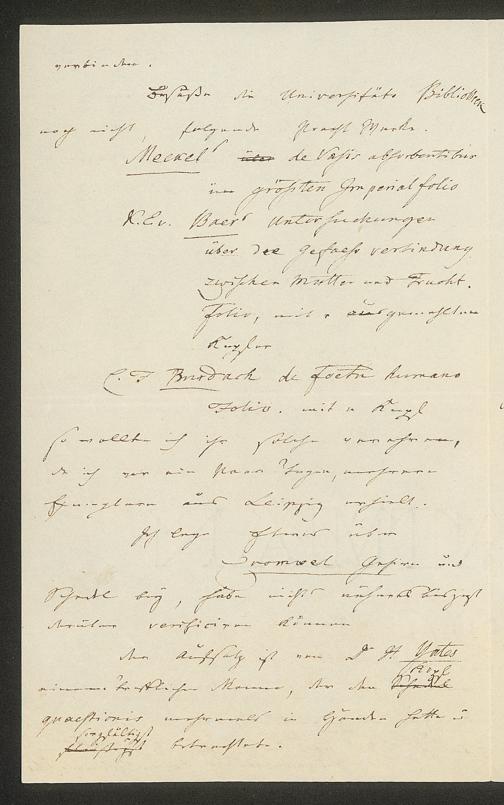 verbinden.
Besäße die Universitäts Bibliothek
noch nicht, folgende Pracht Werke.
Meckel's über de Vasis absorbentibus
im größten Imperialfolio
K. E. v. Baer's Untersuchungen
über die Gefaess verbindung
zwischen Mutter und Frucht.
Folio, mit ausgemahlten
Kupfer
C. F. Burdach de foetu humano
Folio. mit Kupf
so wollte ich ihr solche verehren,
da ich vor ein Paar Tagen, mehrere
Exemplare aus Leipzig erhielt.
Ich lege etwas über
Cromwel Gehirn und
Schedel bey, habe nichts näheres
darüber verificiren können
der Aufsatz ist von Dr H. Yates
einem trefflichen Manne, der den Schedel Kopf
quaestionis mehrmals in Händen hatte u
sorgfältigst betrachtete.